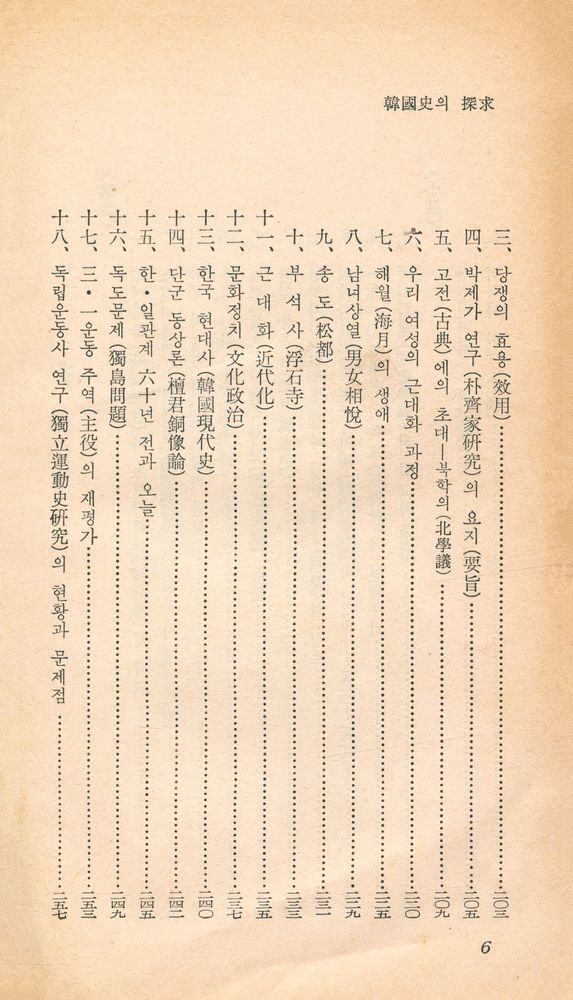 韓國史의 探求
三、 당쟁의 효용(效用)……二〇三
四、 박제가 연구(朴齊家硏究)의 요지(要旨)……二〇五
五、 고전(古典)에의 초대—북학의(北學議)……二〇九
六、 우리 여성의 근대화 과정……二二〇
七、 해월(海月)의 생애……二二五
八、 남녀상열(男女相悅)……二二九
九、 송도(松都)……二三一
十、 부석사(浮石寺)……二三三
十一、 근대화(近代化)……二三五
十二、 문화정치(文化政治)……二三七
十三、 한국 현대사(韓國現代史)……二四〇
十四、 단군 동상론(檀君銅像論)……二四二
十五、 한·일관계 六十년 전과 오늘……二四五
十六、 독도문제(獨島問題)……二四九
十七、 三·一운동 주역(主役)의 재평가……二五三
十八、 독립운동사 연구(獨立運動史硏究)의 현황과 문제점……二五七
6